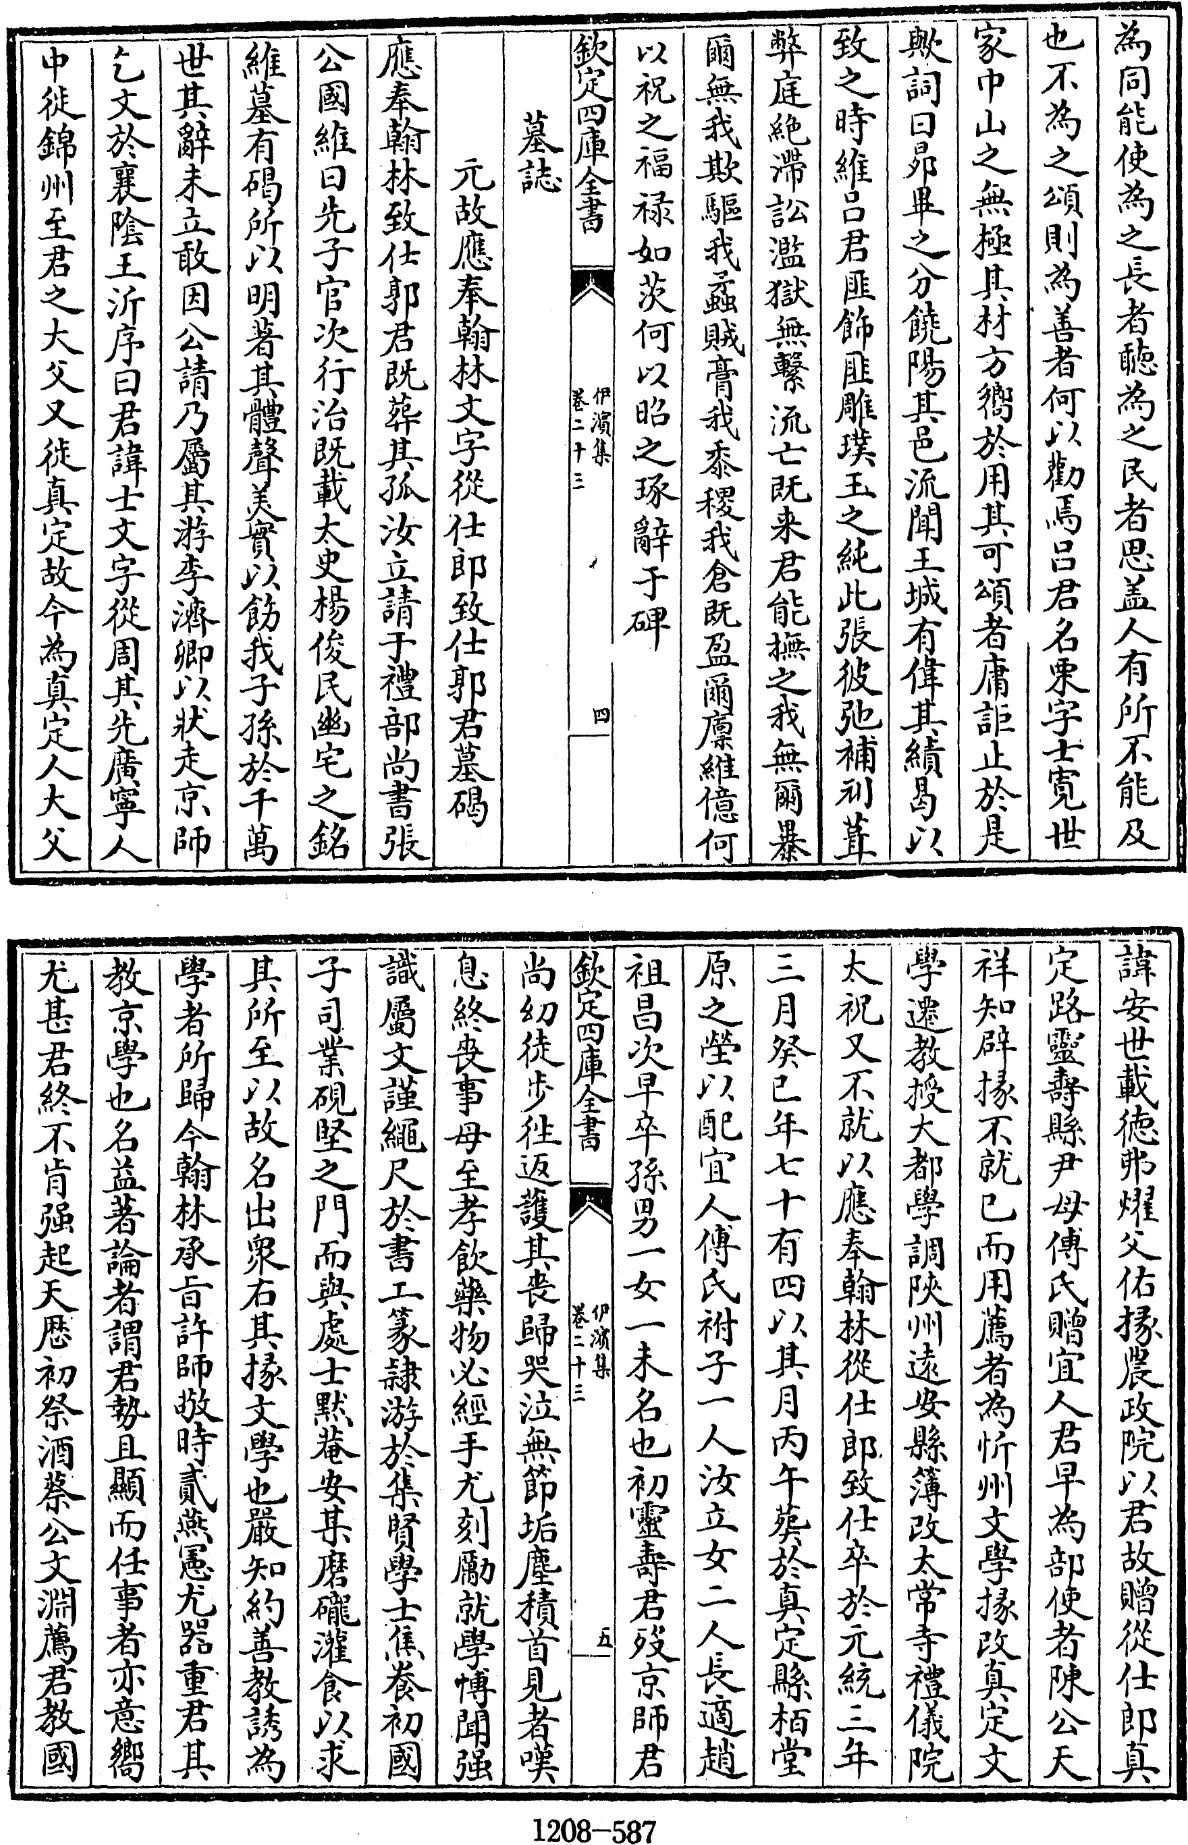 為同能使為之長者聽為之民者思盖人有所不能及
也不為之頌則為善者何以勸焉吕君名栗字士寛世
家巾山之無極其材方嚮於用其可頌者庸詎止於是
歟詞曰昴畢之分饒陽其邑流聞王城有偉其績曷以
致之時維吕君匪飾匪雕璞玉之純此張彼弛補刓葺
弊庭絶滯訟濫獄無繫流亡既来君能撫之我無爾暴
爾無我欺驅我蟊賊膏我黍稷我倉既盈爾廪維億何
以祝之福禄如茨何以昭之琢辭于碑
欽定四庫全書
伊濱集
卷二十三
四
墓誌
元故應奉翰林文字從仕郎致仕郭君墓碣
應奉翰林致仕郭君既葬其孤汝立請于禮部尚書張
公國維曰先子官次行治既載太史楊俊民幽宅之銘
維墓有碣所以明著其體聲美實以飭我子孫於千萬
世其辭未立敢因公請乃屬其游李濟卿以狀走京師
乞文於襄陰王沂序曰君諱士文字從周其先廣寧人
中徙錦州至君之大父又徙真定故今為真定人大父
諱安世載徳弗燿父佑掾農政院以君故贈從仕郎真
定路靈壽縣尹母傅氏贈宜人君早為部使者陳公天
祥知辟掾不就已而用薦者為忻州文學掾改真定文
學遷教授大都學調陜州遠安縣簿改太常寺禮儀院
太祝又不就以應奉翰林從仕郎致仕卒於元統三年
三月癸巳年七十有四以其月丙午葬於真定縣栢堂
原之塋以配宜人傅氏祔子一人汝立女二人長適趙
祖昌次早卒孫男一女一未名也初靈壽君歿京師君
欽定四庫全書
伊濱集
卷二十三
五
尚幼徒步往返護其喪歸哭泣無節垢塵積首見者嘆
息終喪事母至孝飲藥物必經手尤刻勵就學博聞强
識屬文謹繩尺於書工篆隸游於集賢學士焦養初國
子司業硯堅之門而與處士默菴安某磨礲灌食以求
其所至以故名出衆右其掾文學也嚴知約善教誘為
學者所歸今翰林承旨許師敬時貳燕憲尤器重君其
教京學也名益著論者謂君勢且顯而任事者亦意嚮
尤甚君終不肯强起天厯初祭酒蔡公文淵薦君教國
1208—587